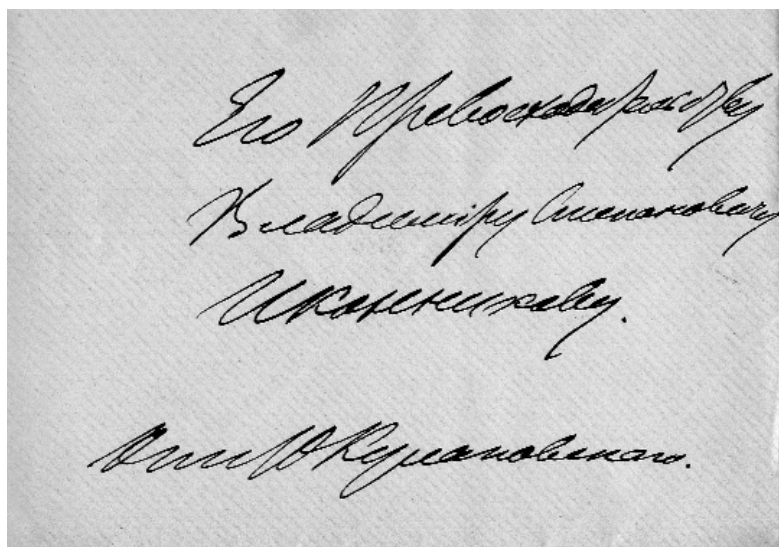 Его Превосходительству
Владиміру Степановичу
Иконникову.
Отъ Ю Кулаковскаго.